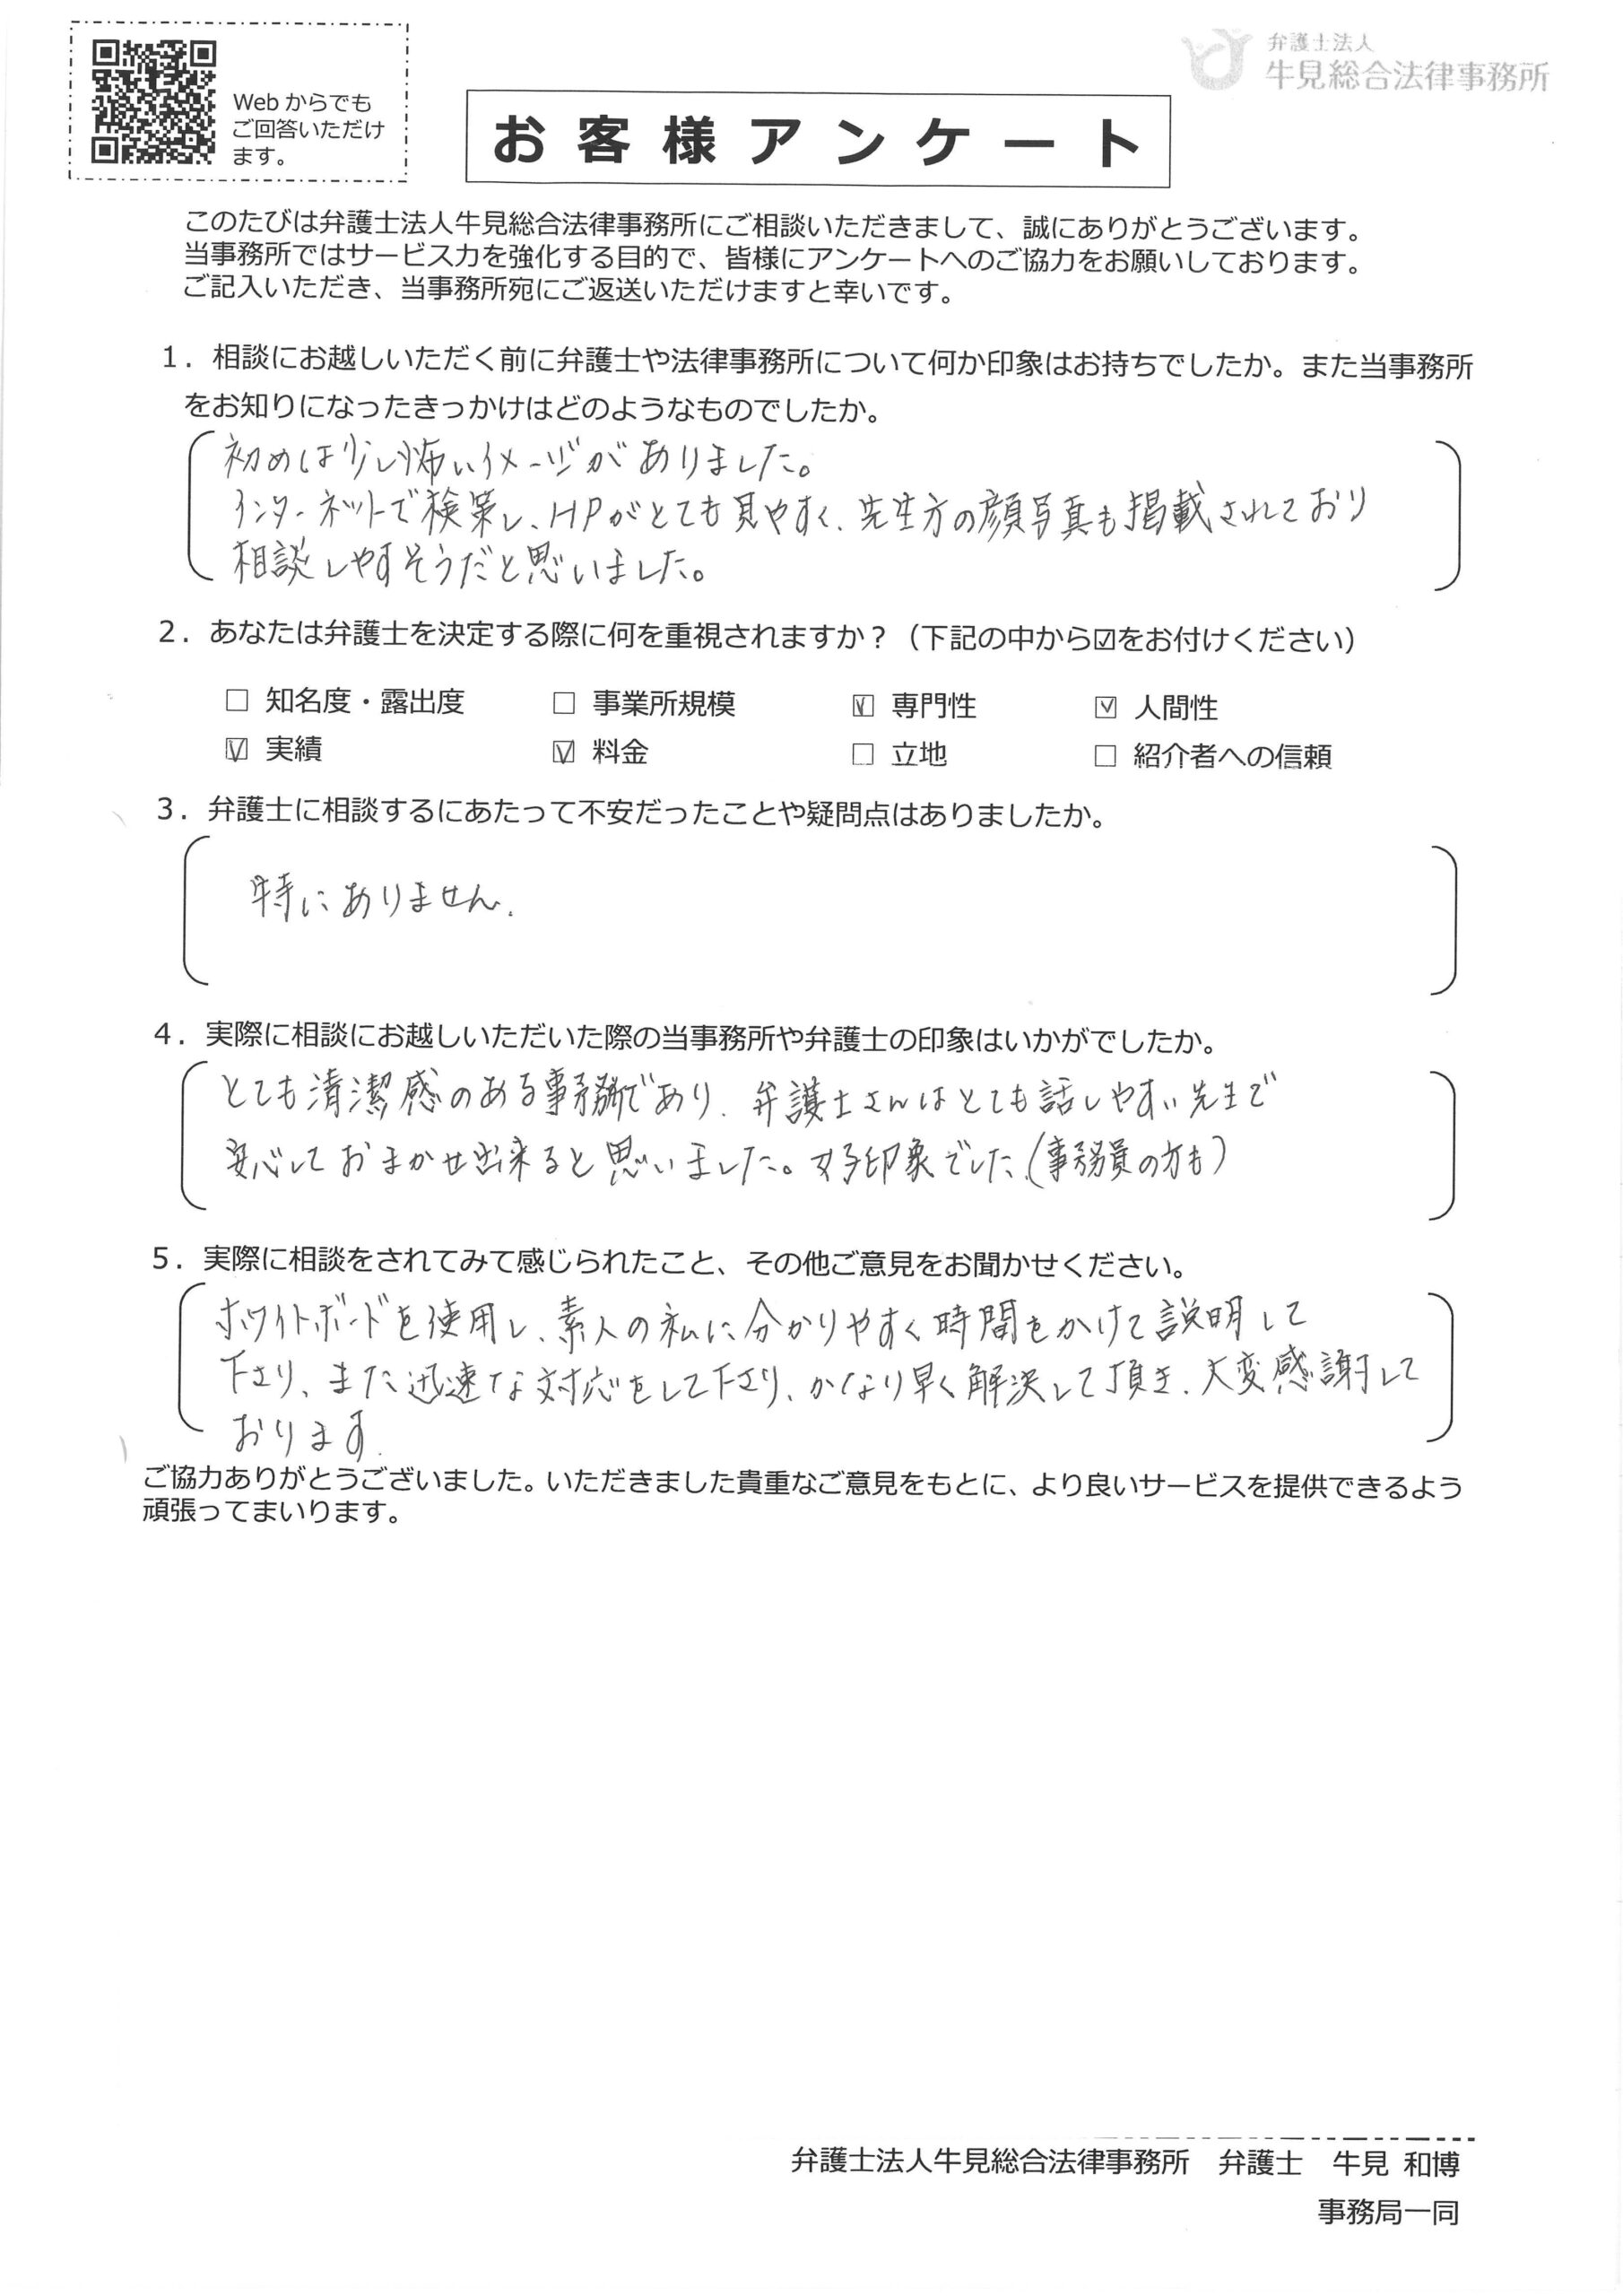 Webからでも
ご回答いただけ
ます。
弁護士法人
牛見総合法律事務所
お客様アンケート
このたびは弁護士法人牛見総合法律事務所にご相談いただきまして、誠にありがとうございます。
当事務所ではサービス力を強化する目的で、皆様にアンケートへのご協力をお願いしております。
ご記入いただき、当事務所宛にご返送いただけますと幸いです。
1．相談にお越しいただく前に弁護士や法律事務所について何か印象はお持ちでしたか。また当事務所
をお知りになったきっかけはどのようなものでしたか。
初めは少し怖いイメージがありました。
インターネットで検索し、HPがとても見やすく、先生方の顔写真も掲載されており
相談しやすそうだと思いました。
2．あなたは弁護士を決定する際に何を重視されますか？（下記の中から☑をお付けください）
□ 知名度・露出度 □ 事業所規模 ☑ 専門性 ☑ 人間性
☑ 実績 ☑ 料金 □ 立地 □ 紹介者への信頼
3．弁護士に相談するにあたって不安だったことや疑問点はありましたか。
特にありません.
4．実際に相談にお越しいただいた際の当事務所や弁護士の印象はいかがでしたか。
とても清潔感のある事務所であり、弁護士さんはとても話しやすい先生で
安心しておまかせ出来ると思いました。好印象でした.(事務員の方も)
5．実際に相談をされてみて感じられたこと、その他ご意見をお聞かせください。
ホワイトボードを使用し、素人の私に分かりやすく時間をかけて説明して
下さり、また迅速な対応をして下さり、かなり早く解決して頂き、大変感謝して
おります.
ご協力ありがとうございました。いただきました貴重なご意見をもとに、より良いサービスを提供できるよう
頑張ってまいります。
弁護士法人牛見総合法律事務所　弁護士　牛見 和博
事務局一同